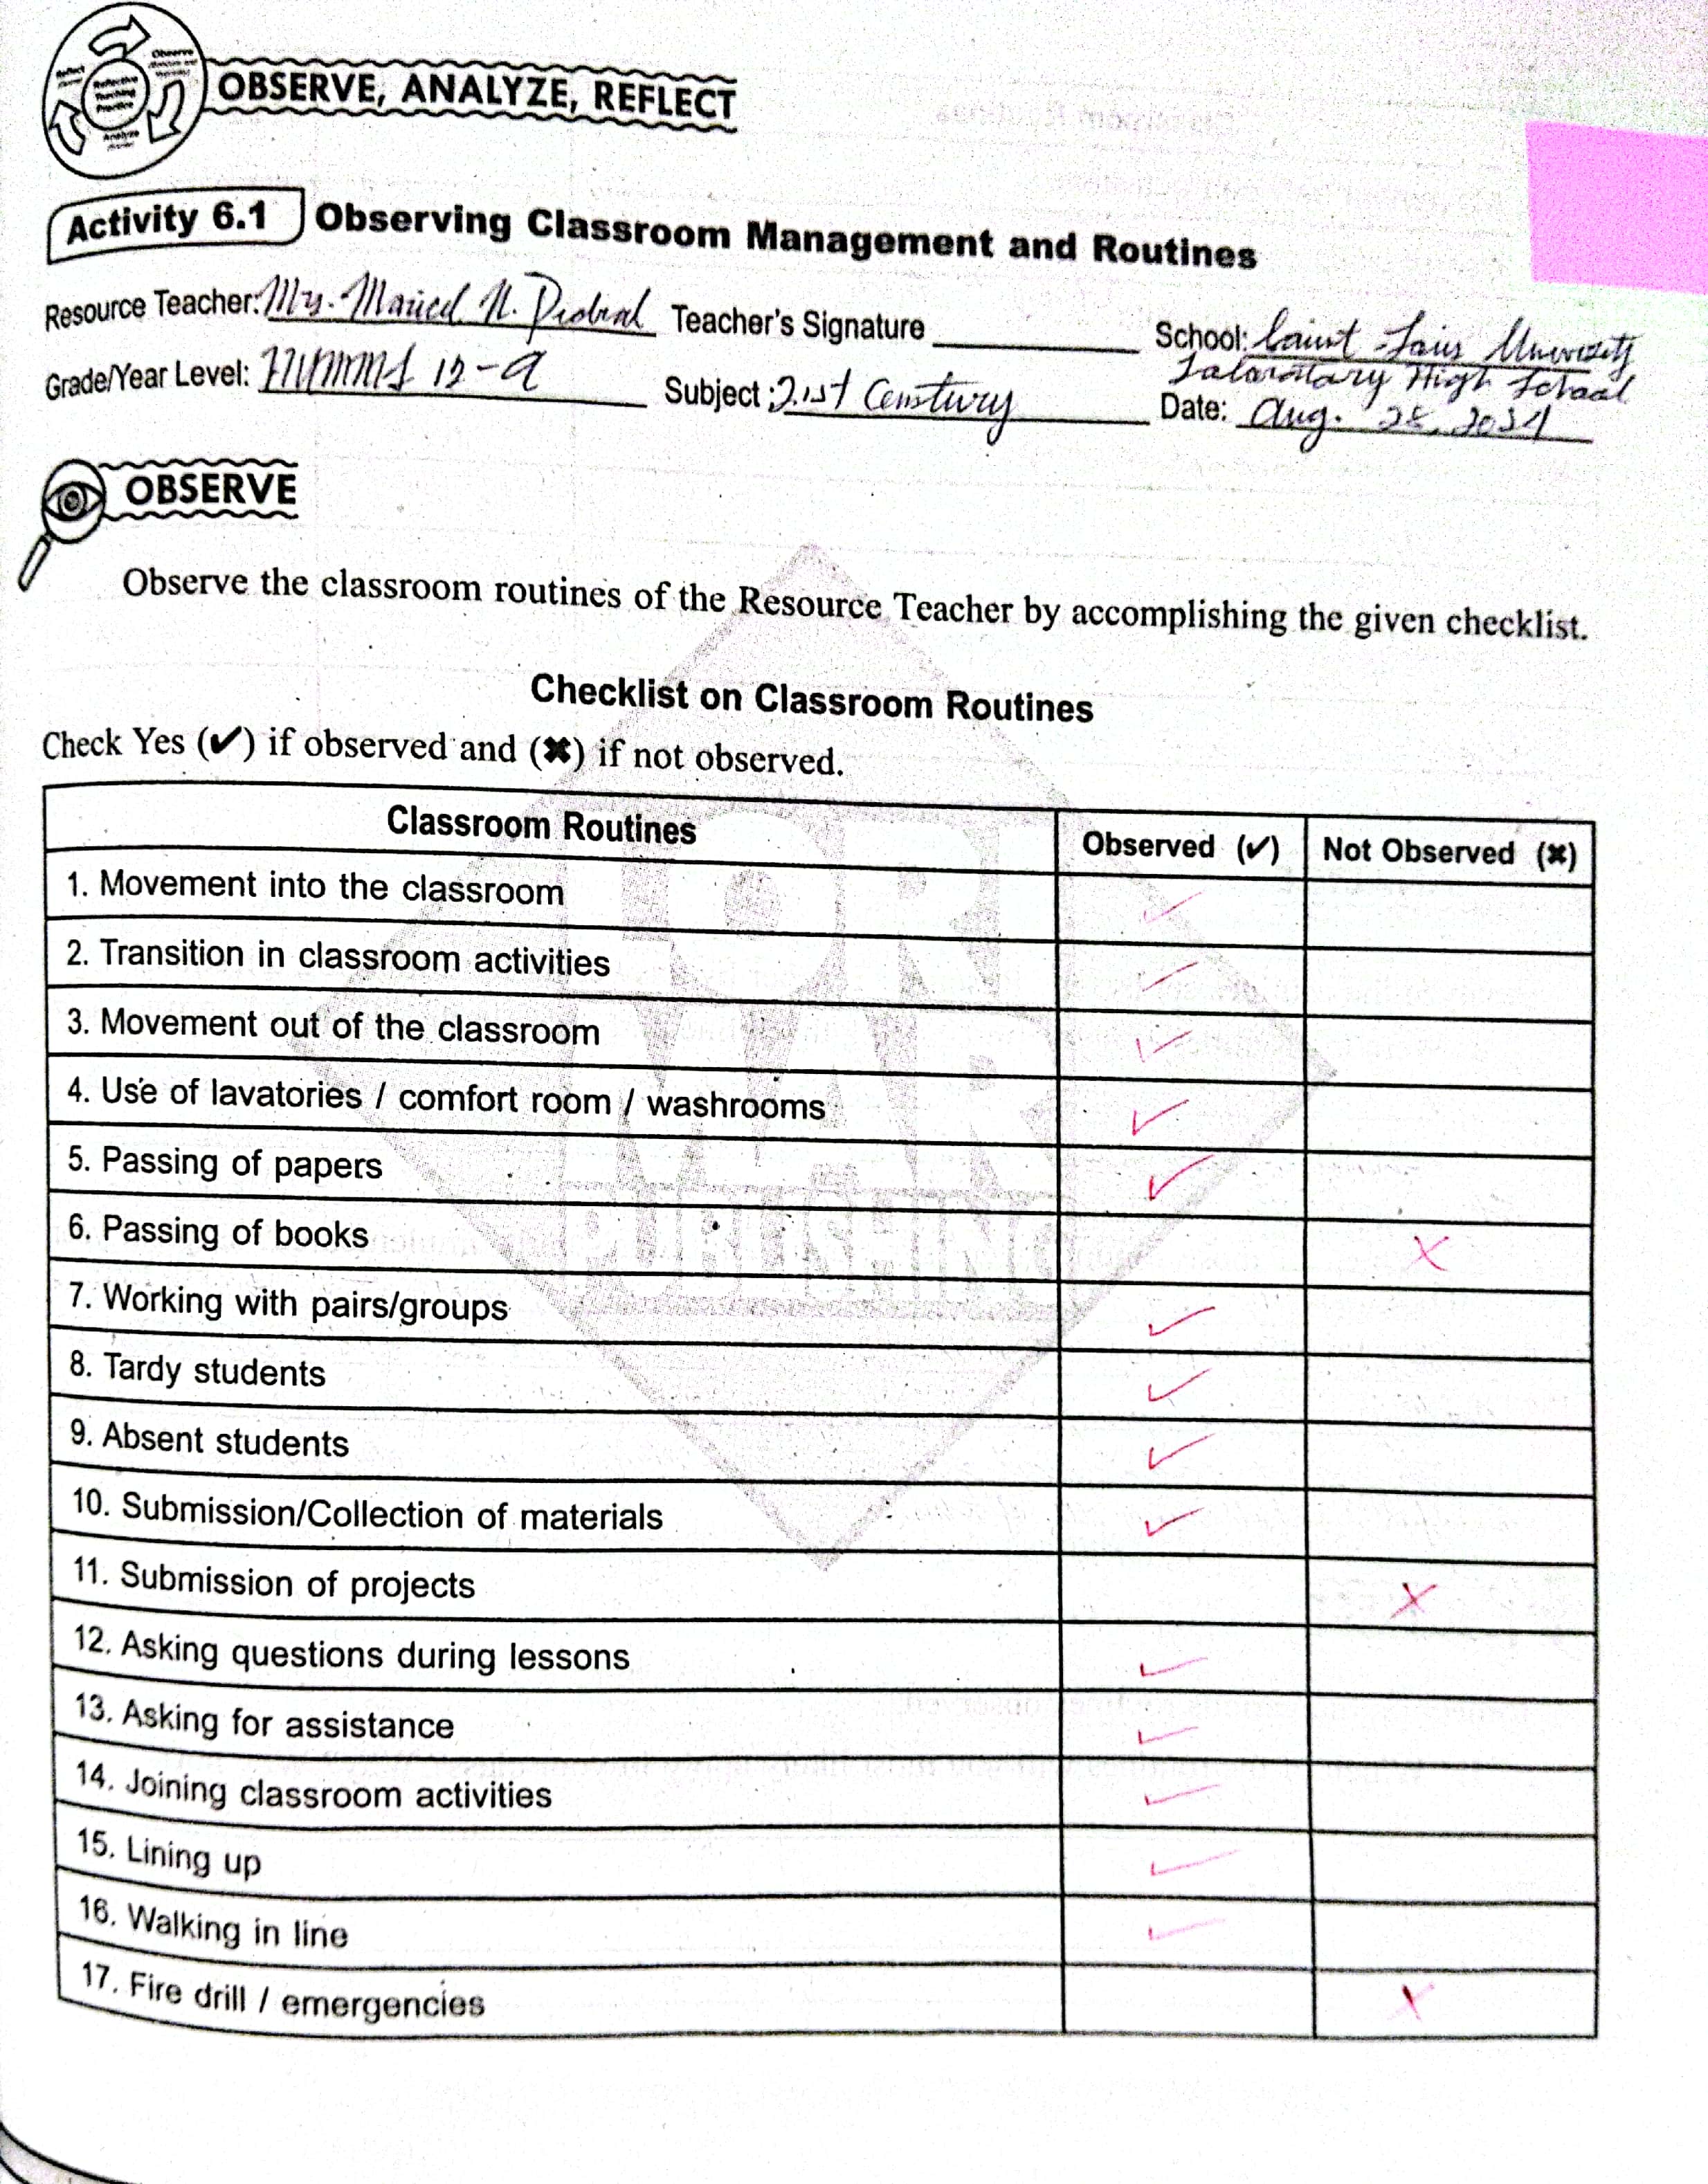 OBSERVE, ANALYZE, REFLECT
Activity 6.1 Observing Classroom Management and Routines
Resource Teacher: Mrs. Maricel N. Teacher's Signature School: Saint University
Laboratory High School
Grade/Year Level: 12-A Subject: 21st Century Date: Aug. 28, 2024
OBSERVE
Observe the classroom routines of the Resource Teacher by accomplishing the given checklist.
Checklist on Classroom Routines
Check Yes (✔) if observed and (✖) if not observed.
Classroom Routines Observed (✔) Not Observed (✖)
1. Movement into the classroom ✓
2. Transition in classroom activities ✓
3. Movement out of the classroom ✓
4. Use of lavatories / comfort room / washrooms ✓
5. Passing of papers ✓
6. Passing of books X
7. Working with pairs/groups ✓
8. Tardy students ✓
9. Absent students ✓
10. Submission/Collection of materials ✓
11. Submission of projects X
12. Asking questions during lessons ✓
13. Asking for assistance ✓
14. Joining classroom activities ✓
15. Lining up ✓
16. Walking in line ✓
17. Fire drill / emergencies X